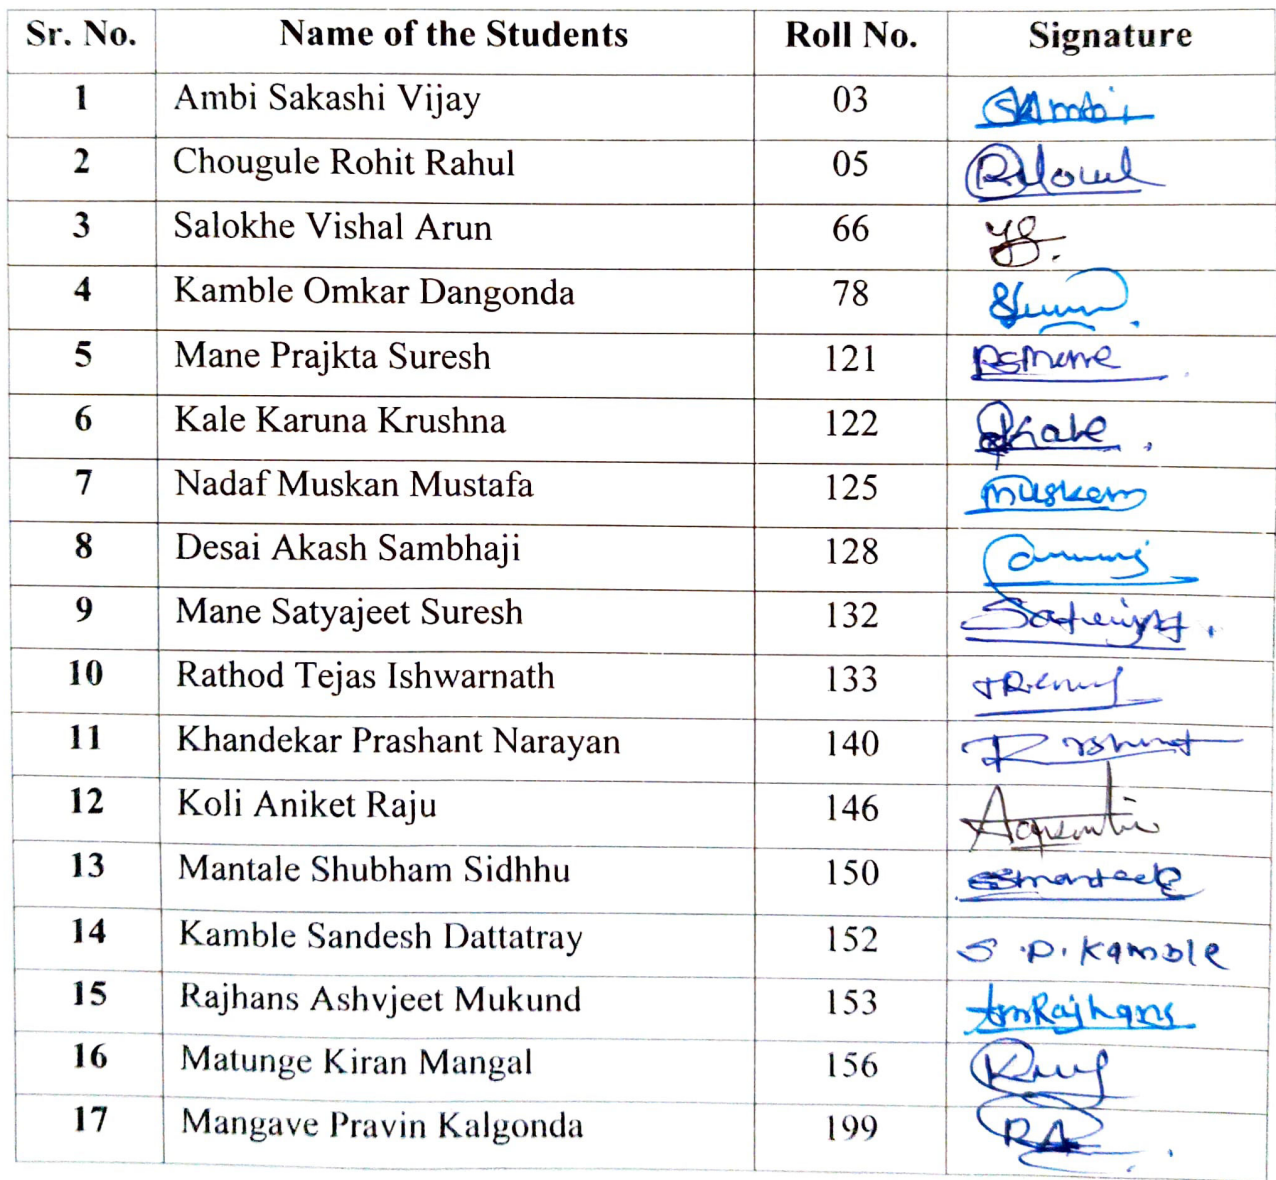 Sr. No. Name of the Students Roll No. Signature
1 Ambi Sakashi Vijay 03
2 Chougule Rohit Rahul 05
3 Salokhe Vishal Arun 66
4 Kamble Omkar Dangonda 78
5 Mane Prajkta Suresh 121 PSMane
6 Kale Karuna Krushna 122
7 Nadaf Muskan Mustafa 125 muskan
8 Desai Akash Sambhaji 128
9 Mane Satyajeet Suresh 132
10 Rathod Tejas Ishwarnath 133
11 Khandekar Prashant Narayan 140
12 Koli Aniket Raju 146
13 Mantale Shubham Sidhhu 150
14 Kamble Sandesh Dattatray 152 S.D.Kamble
15 Rajhans Ashvjeet Mukund 153 AmRajhans
16 Matunge Kiran Mangal 156
17 Mangave Pravin Kalgonda 199